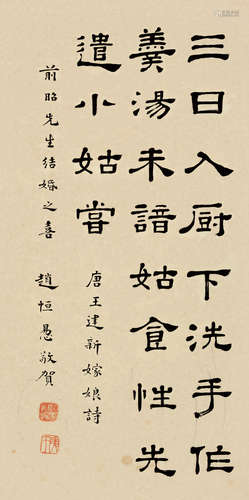 三日入厨下洗手作
羹湯未諳姑食性先
遣小姑嘗
唐王建新嫁娘詩
前昭先生结婚之喜
趙恒惖敬賀